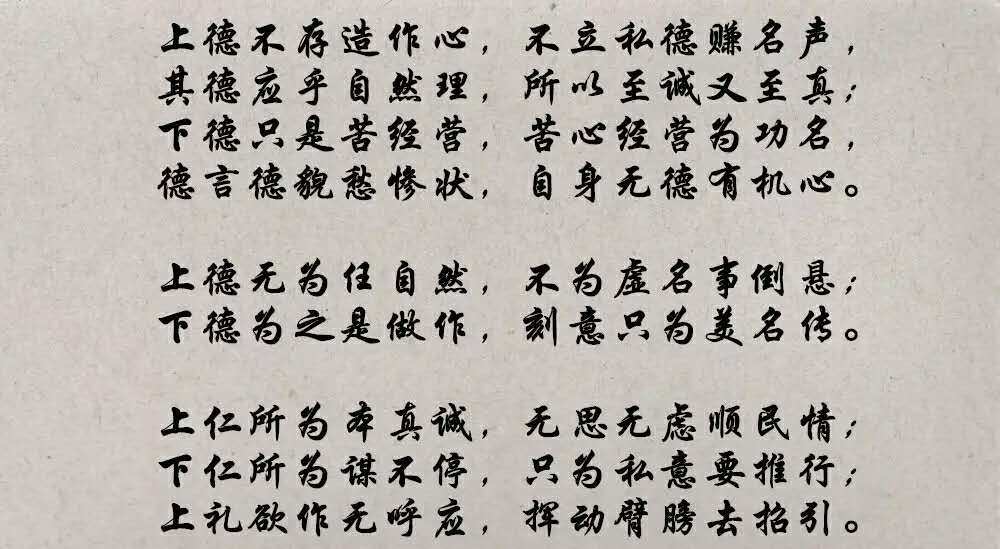 上德不存造作心，不立私德赚名声，
其德应乎自然理，所以至诚又至真；
下德只是苦经营，苦心经营为功名，
德言德貌愁惨状，自身无德有机心。
上德无为任自然，不为虚名事倒悬；
下德为之是做作，刻意只为美名传。
上仁所为本真诚，无思无虑顺民情；
下仁所为谋不停，只为私意要推行；
上礼欲作无呼应，挥动臂膀去招引。